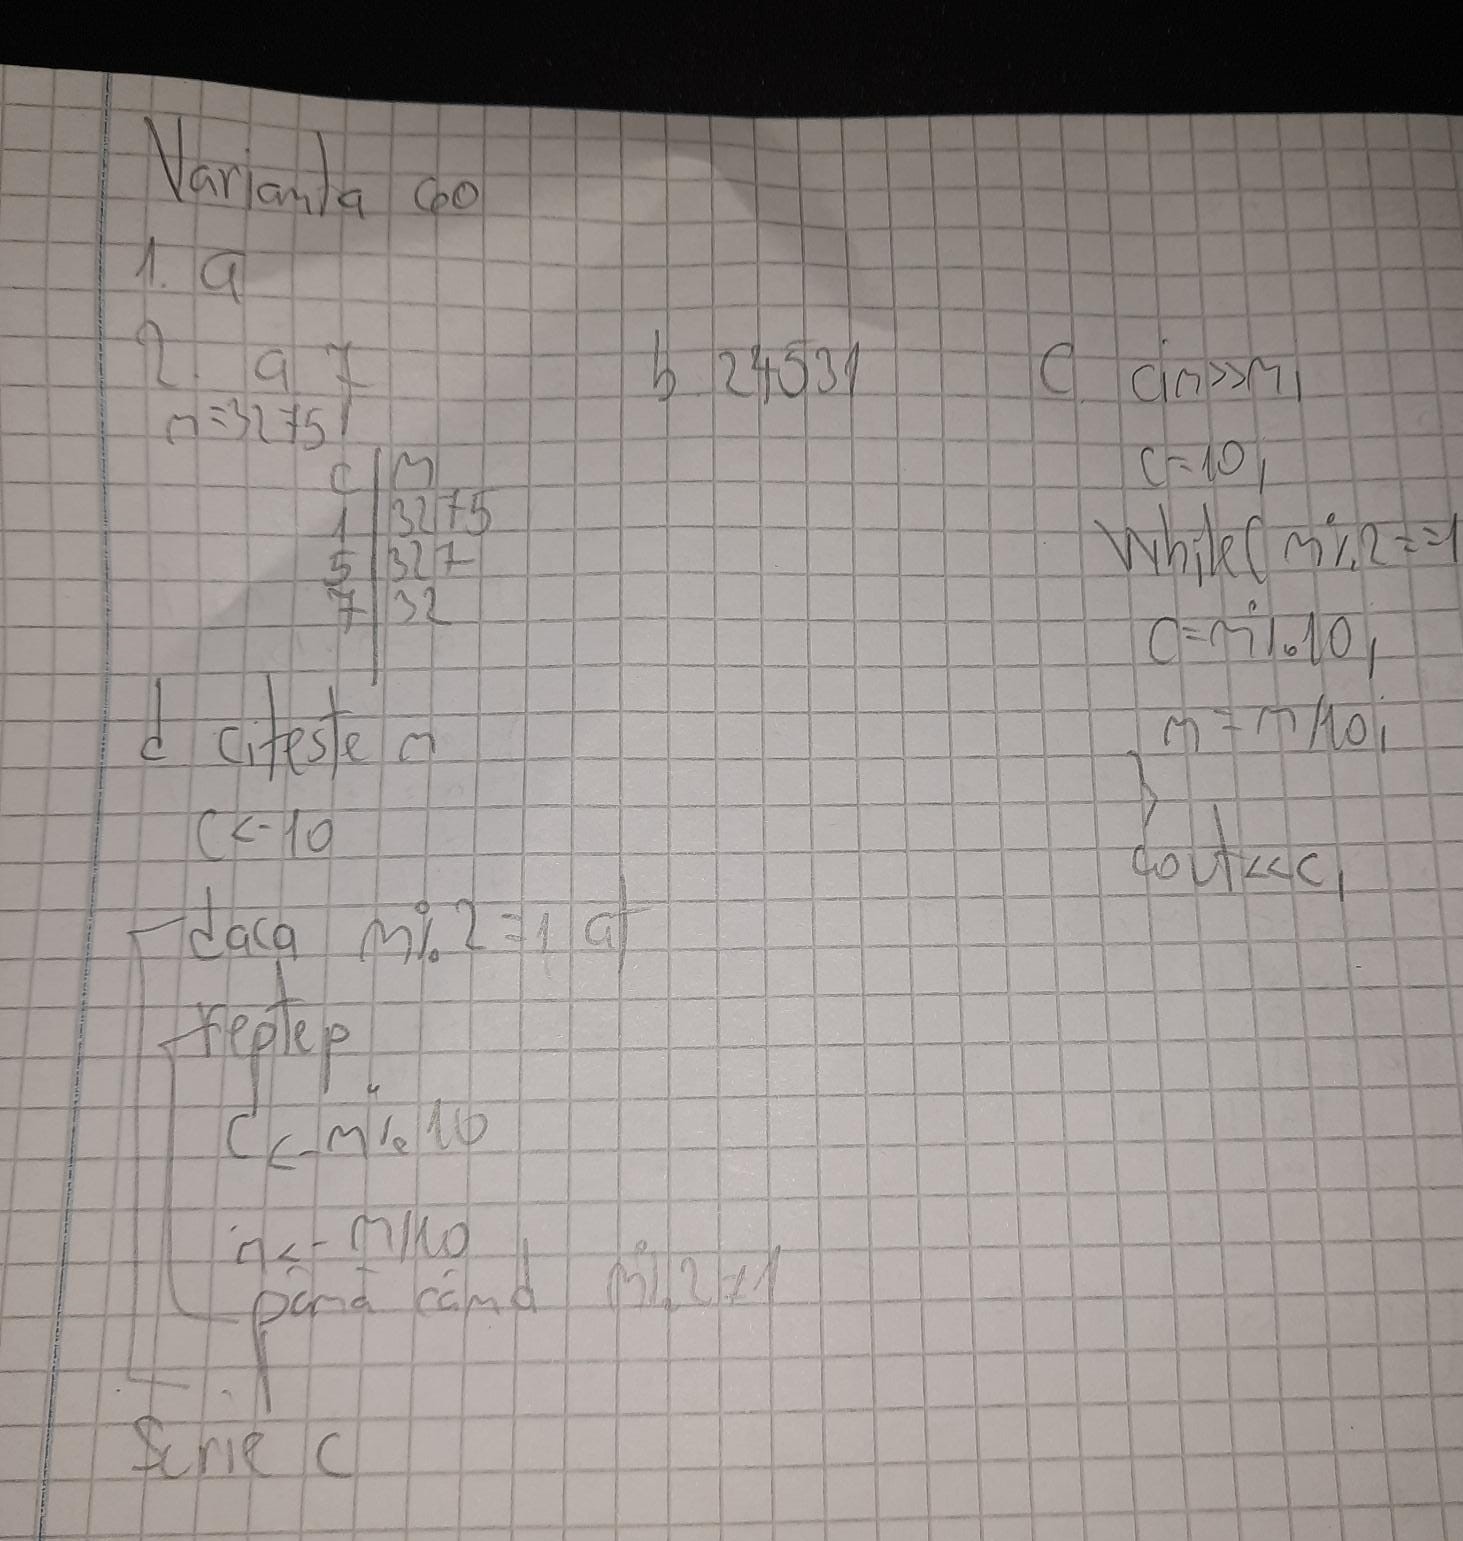 Varianta 60
1. a
2. a 7
n=3275
c | n
1 | 3275
5 | 327
7 | 32
b 24531
C cin>>n;
c=10;
while(n%2==1
c=n%10;
n=n/10;
}
cout<<c;
d citeste n
c<-10
daca n%2=1 at
reptep
c<-n%10
n<-n/10
până când n%2≠1
Scrie c